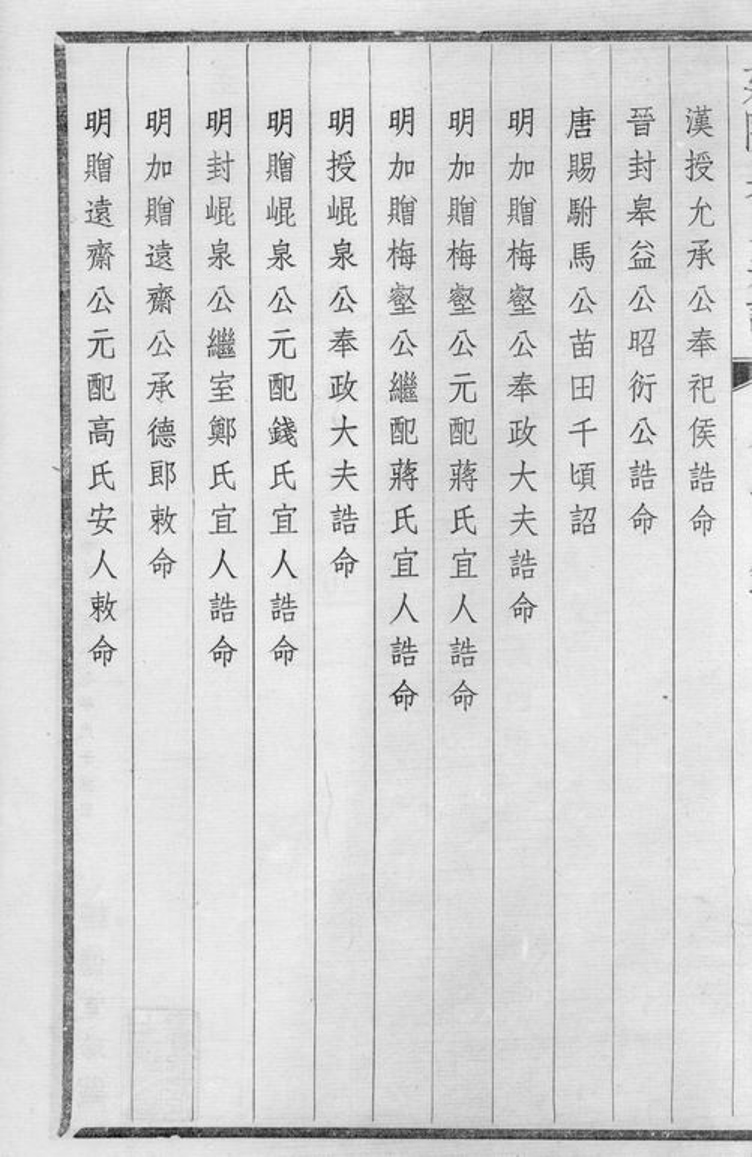 漢授允承公奉祀侯誥命
晉封皋益公昭衍公誥命
唐賜駙馬公苗田千頃詔
明加贈梅壑公奉政大夫誥命
明加贈梅壑公元配蔣氏宜人誥命
明加贈梅壑公繼配蔣氏宜人誥命
明授崐泉公奉政大夫誥命
明贈崐泉公元配錢氏宜人誥命
明封崐泉公繼室鄭氏宜人誥命
明加贈遠齋公承德郎敕命
明贈遠齋公元配高氏安人敕命